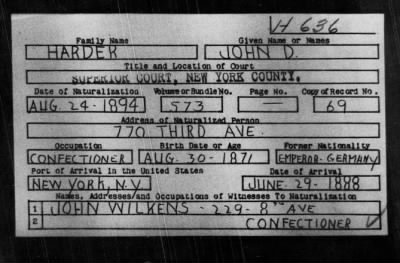 VH 636
Family Name Given Name or Names
HARDER JOHN D.
Title and Location of Court
SUPERIOR COURT, NEW YORK COUNTY.
Date of Naturalization Volume or Bundle No. Page No. Copy of Record No.
AUG. 24 - 1894 573 — 69
Address of Naturalized Person
770 THIRD AVE.
Occupation Birth Date or Age Former Nationality
CONFECTIONER AUG. 30 - 1871 EMPEROR-GERMANY
Port of Arrival in the United States Date of Arrival
NEW YORK, N.Y. JUNE. 29 - 1888
Names, Addresses/and Occupations of Witnesses To Naturalization
1 JOHN WILKENS - 229 - 8TH AVE
2 CONFECTIONER